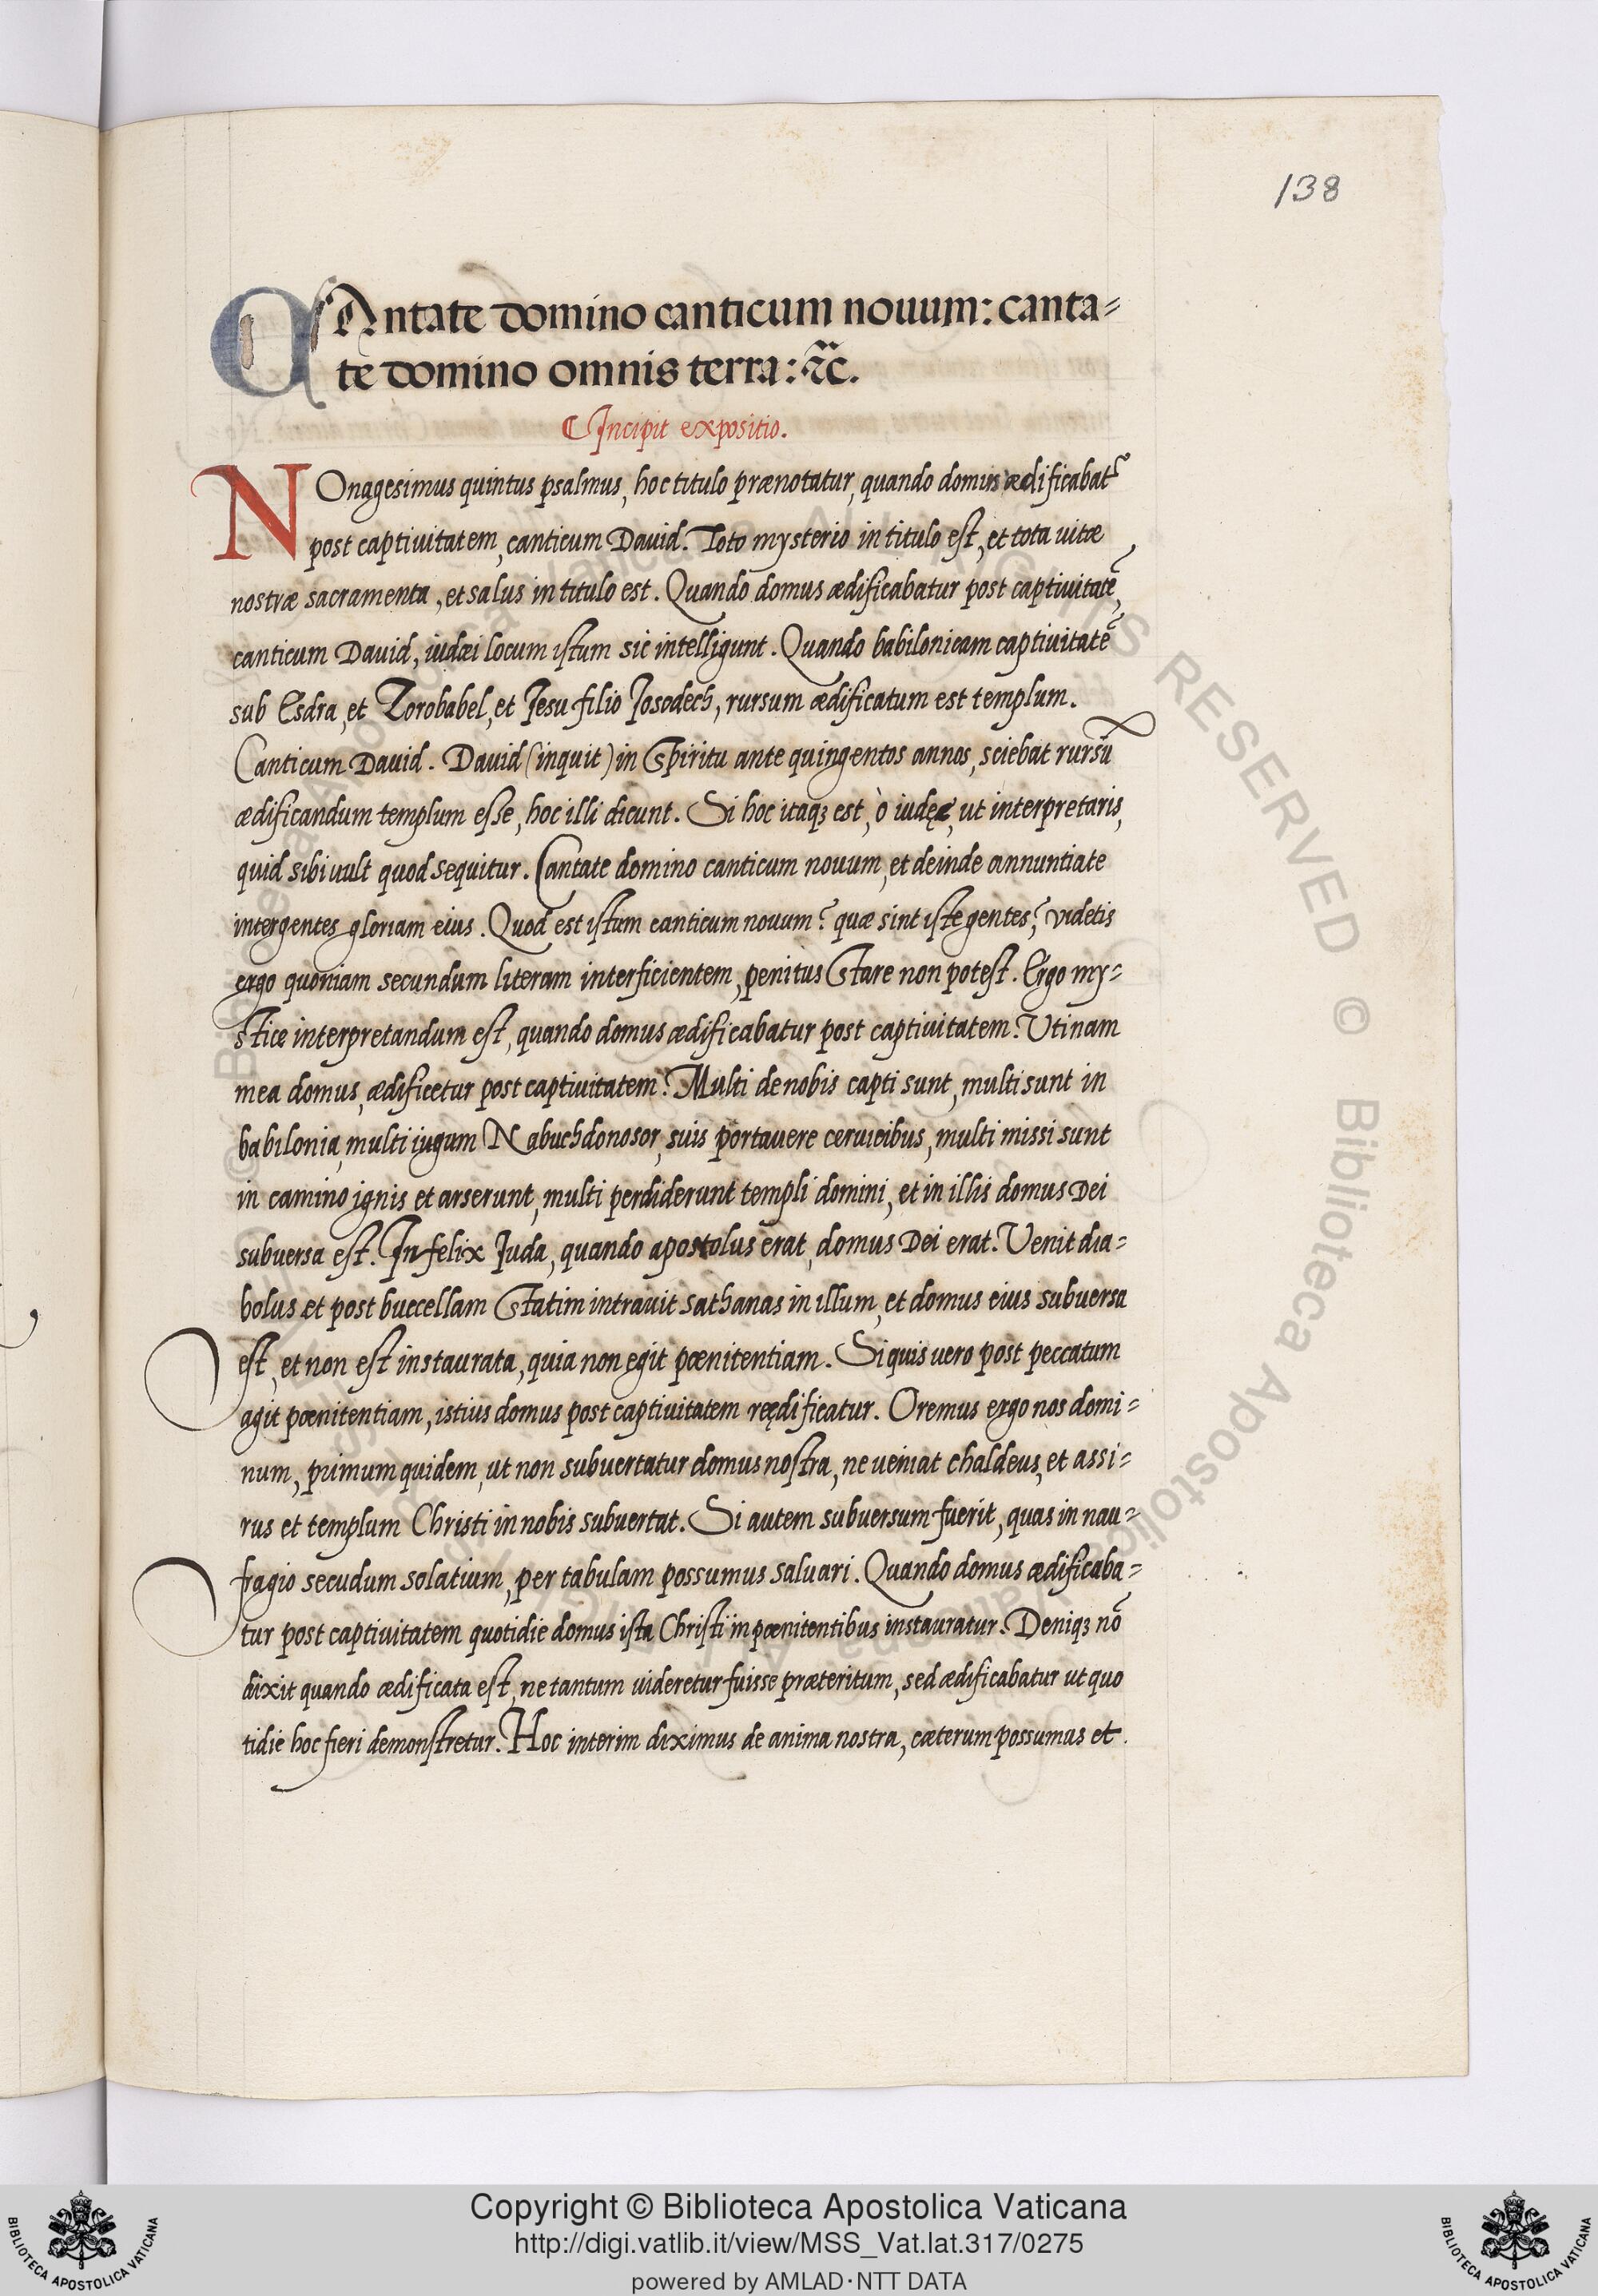 138
CAntate domino canticum nouum: canta=
te domino omnis terra: &c̃.
Incipit expositio.
NOnagesimus quintus psalmus, hoc titulo prænotatur, quando domus ædificabat᷑
post captiuitatem, canticum Dauid. Toto mysterio in titulo est, et tota uitæ
nostræ sacramenta, et salus in titulo est. Quando domus ædificabatur post captiuitatē,
canticum Dauid, iudæi locum istum sic intelligunt. Quando babilonicam captiuitatē
sub Esdra, et Zorobabel, et Jesu filio Josodech, rursum ædificatum est templum.
Canticum Dauid. Dauid (inquit) in Spiritu ante quingentos annos, sciebat rursū
ædificandum templum esse, hoc illi dicunt. Si hoc itaqꝫ est, ò iudęe, ut interpretaris,
quid sibi uult quod sequitur. Cantate domino canticum nouum, et deinde annuntiate
inter gentes gloriam eius. Quod est istum canticum nouum? quæ sint iste gentes? videtis
ergo quoniam secundum literam interficientem, penitus Stare non potest. Ergo my=
stice interpretandum est, quando domus ædificabatur post captiuitatem? Utinam
mea domus, ædificetur post captiuitatem? Multi de nobis capti sunt, multi sunt in
babilonia, multi iugum Nabuchdonosor, suis portauere ceruicibus, multi missi sunt
in camino ignis et arserunt, multi perdiderunt templi domini, et in illis domus Dei
subuersa est. Infelix Juda, quando apostolus erat, domus Dei erat. Venit dia=
bolus et post buccellam Statim intrauit sathanas in illum, et domus eius subuersa
est, et non est instaurata, quia non egit pœnitentiam. Si quis uero post peccatum
agit pœnitentiam, istius domus post captiuitatem reędificatur. Oremus ergo nos domi=
num, primum quidem, ut non subuertatur domus nostra, ne ueniat chaldeus, et assi=
rus et templum Christi in nobis subuertat. Si autem subuersum fuerit, quas in nau=
fragio secudum solatium, per tabulam possumus saluari. Quando domus ædificaba=
tur post captiuitatem quotidie domus ista Christi in pœnitentibus instauratur. Deniqꝫ nō
dixit quando ædificata est, ne tantum uideretur fuisse præteritum, sed ædificabatur ut quo
tidie hoc fieri demonstretur. Hoc interim diximus de anima nostra, cæterum possumus et.
Copyright © Biblioteca Apostolica Vaticana
http://digi.vatlib.it/view/MSS_Vat.lat.317/0275
powered by AMLAD·NTT DATA
BIBLIOTECA APOSTOLICA VATICANA
BIBLIOTECA APOSTOLICA VATICANA